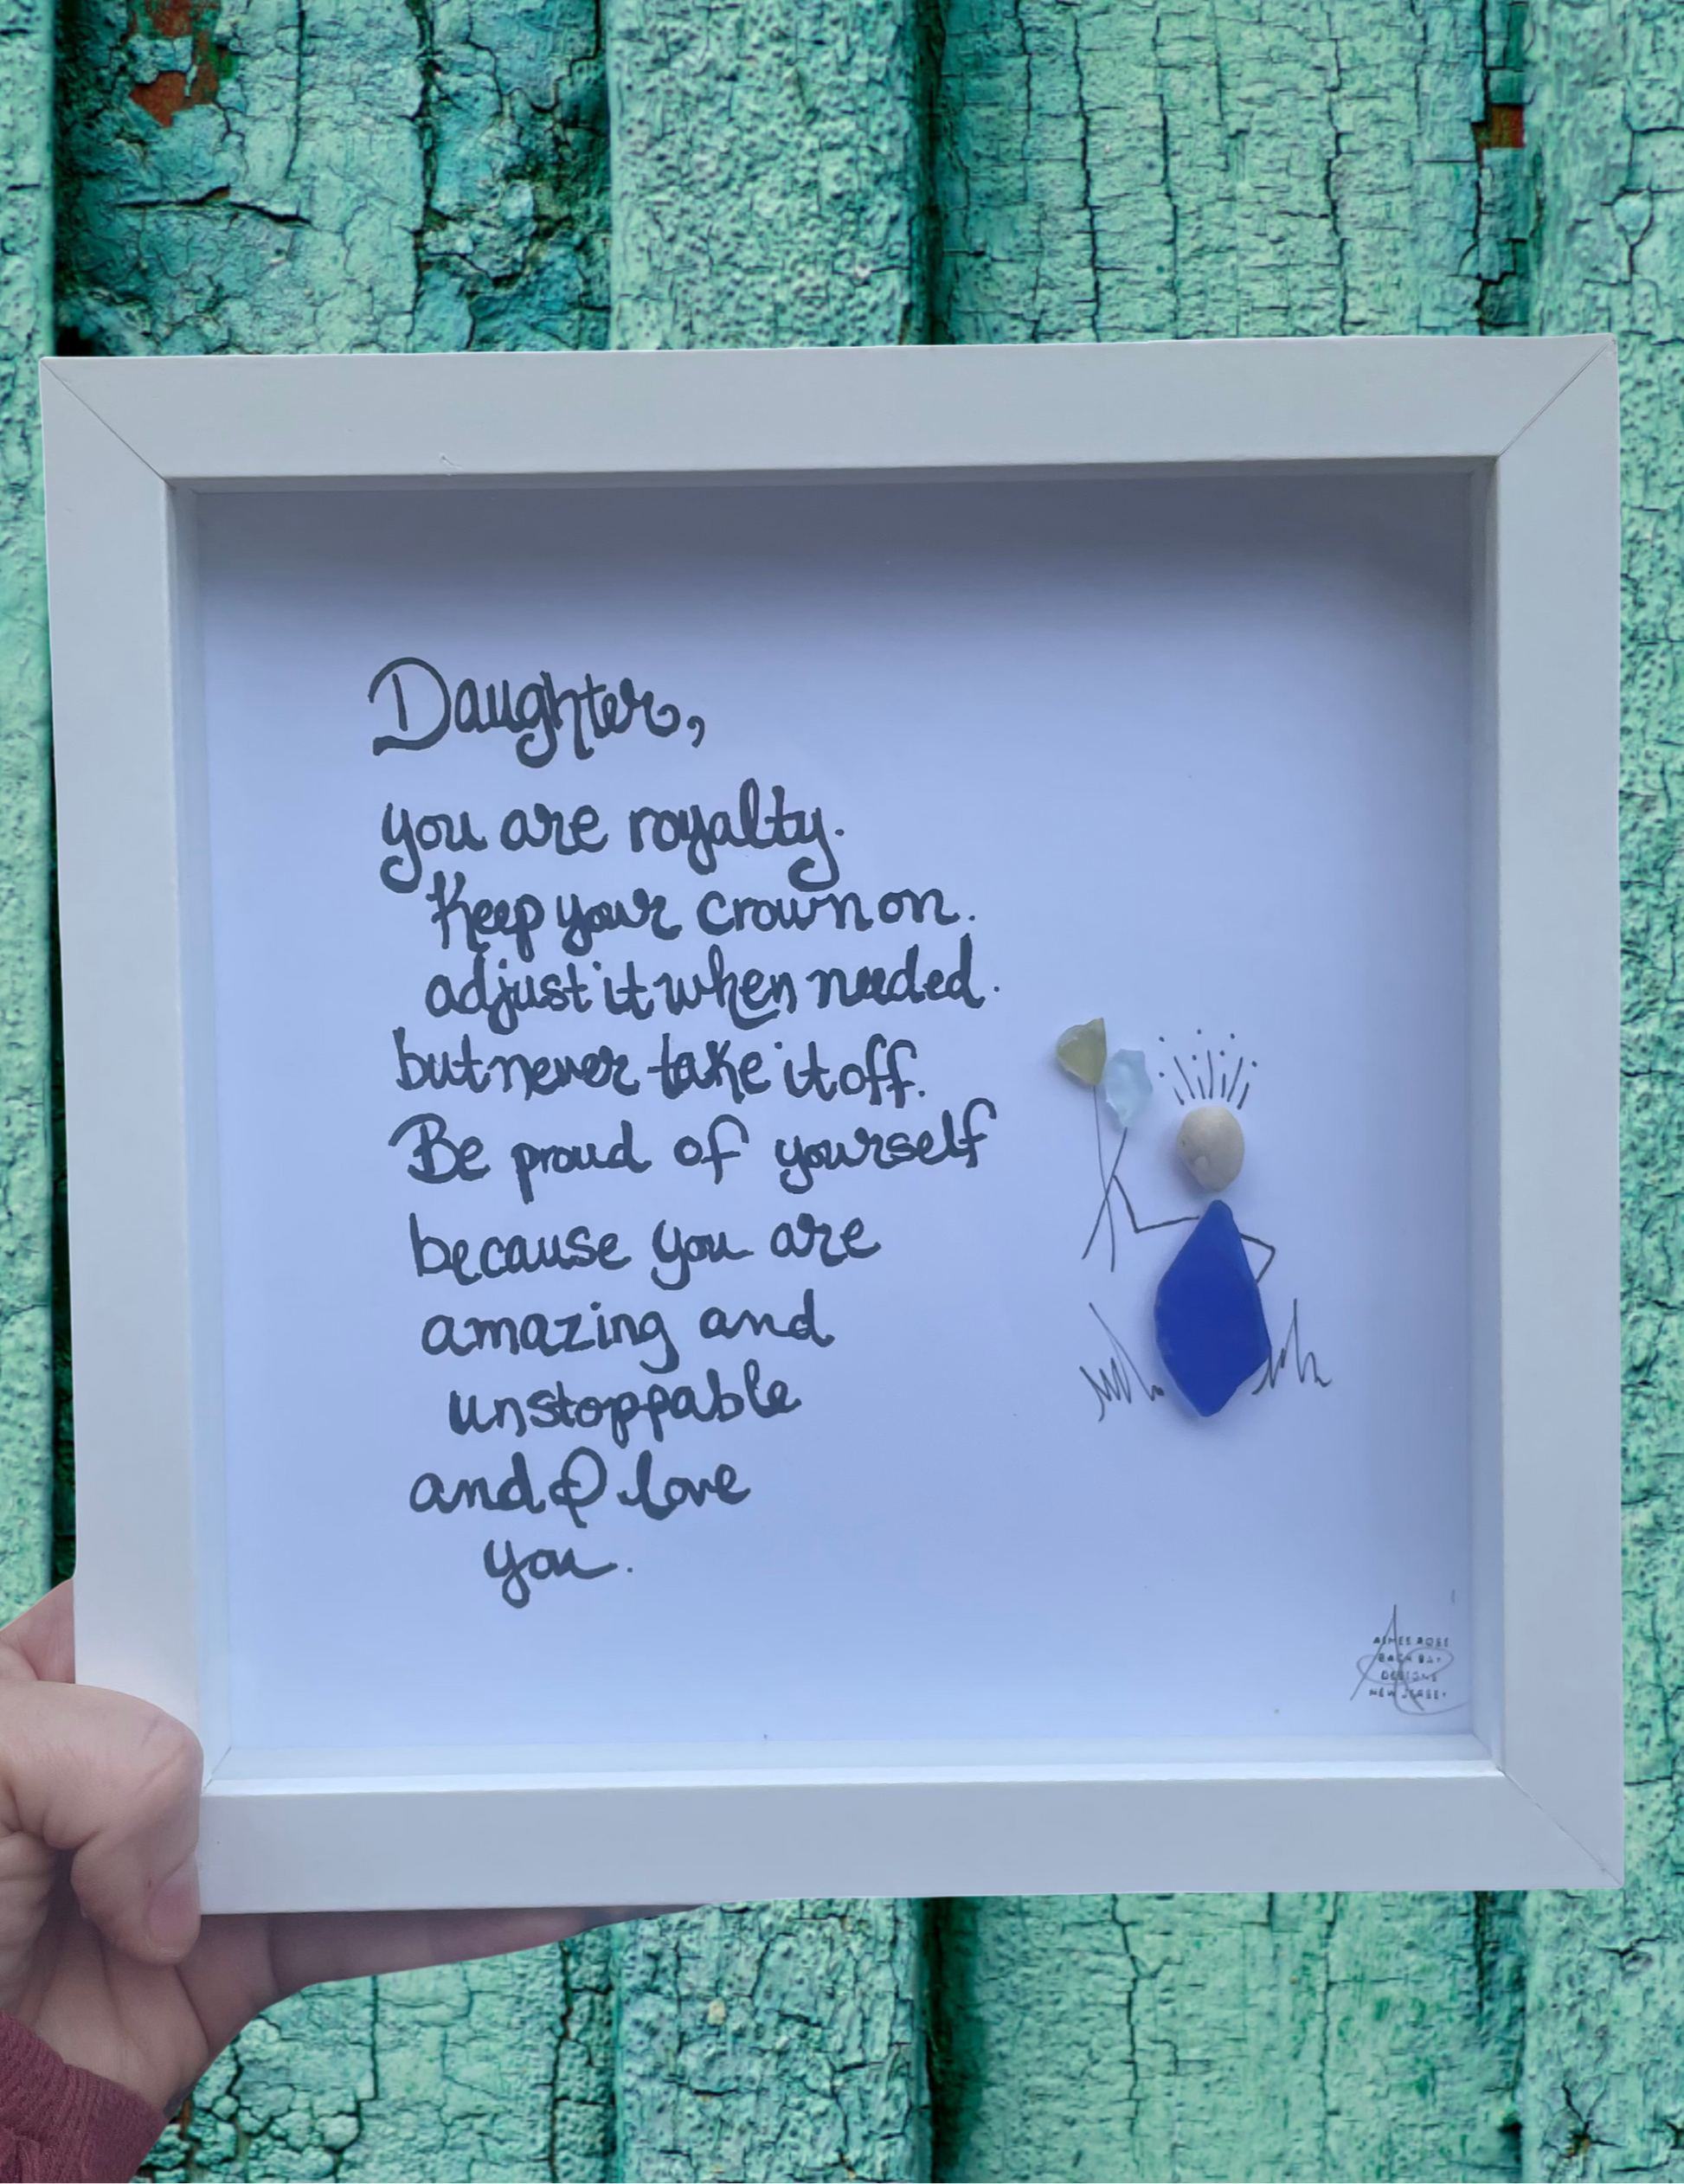 Daughter,
you are royalty.
Keep your crown on.
adjust it when needed.
but never take it off.
Be proud of yourself
because you are
amazing and
unstoppable
and I love
you.
AIMEE ROSE
BACK BAY
DESIGNS
NEW JERSEY